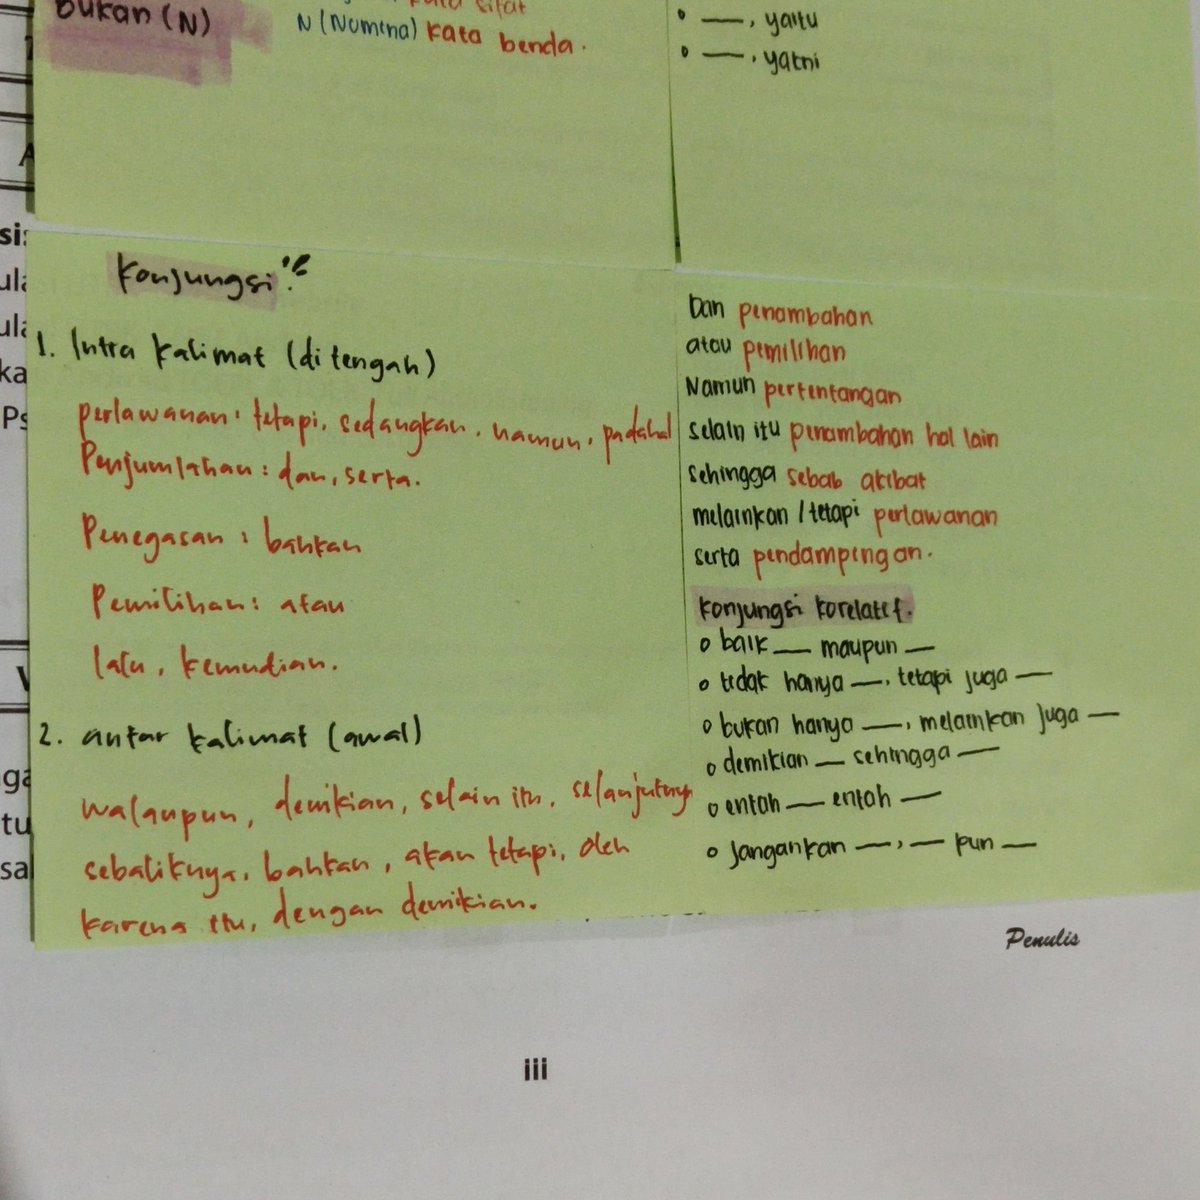 bukan (N)
kata sifat
N (Nomina) kata benda.
• —, yaitu
• —, yakni
Konjungsi!!
1. Intra kalimat (di tengah)
perlawanan: tetapi, sedangkan, namun, padahal
Penjumlahan: dan, serta.
Penegasan: bahkan
Pemilihan: atau
lalu, kemudian.
2. antar kalimat (awal)
walaupun, demikian, selain itu, selanjutnya
sebaliknya, bahkan, akan tetapi, oleh
karena itu, dengan demikian.
Dan penambahan
atau pemilihan
Namun pertentangan
selain itu penambahan hal lain
sehingga sebab akibat
melainkan / tetapi perlawanan
serta pendampingan.
Konjungsi korelatif.
o baik — maupun —
o tidak hanya —, tetapi juga —
o bukan hanya —, melainkan juga —
o demikian — sehingga —
o entah — entah —
o jangankan —, — pun —
Penulis
iii